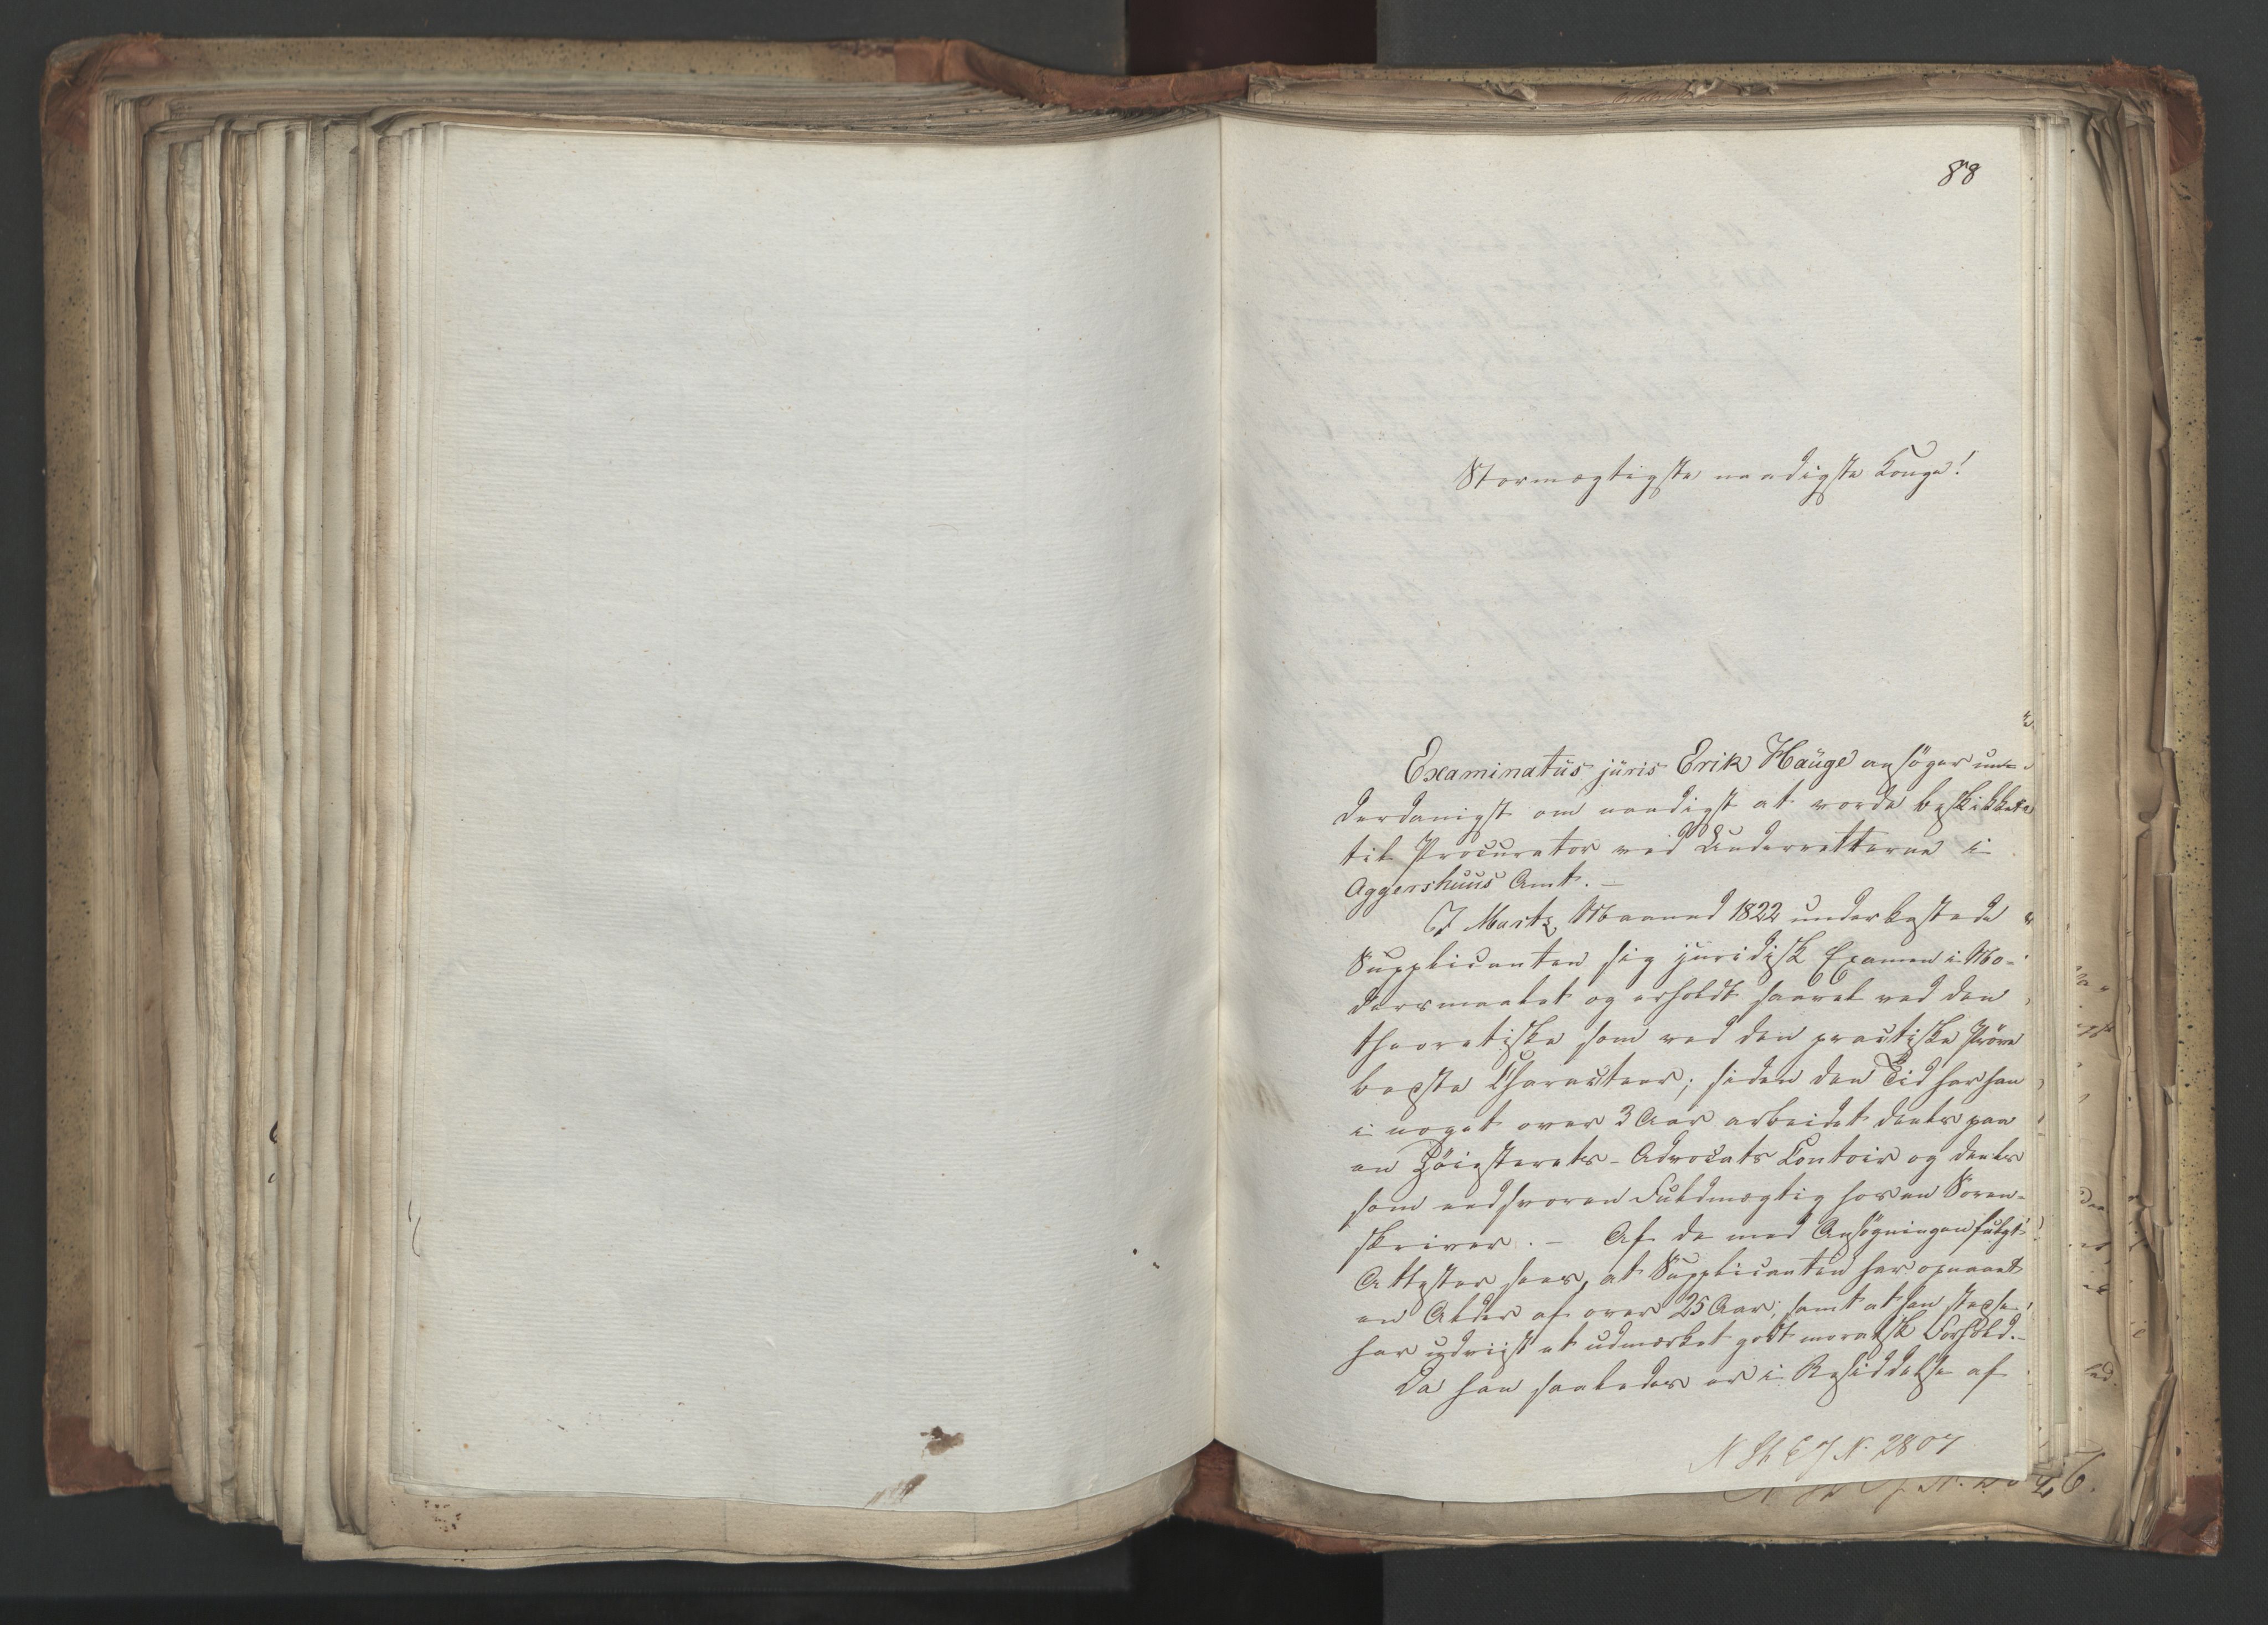 88
Stormægtigste naadigste Konge!
Examinatus juris Erik Hauge ansøger un-
derdanigst om naadigst at vorde beskikket
til Procurator ved Underretterne i
Aggershuus Amt. –
I Martz Maaned 1822 underkastede
Supplicanten sig juridisk Examen i Mo-
dersmaalet og erholdt saavel ved den
theoretiske som ved den practiske Prøve
bedste Characteer; siden den Tid har han
i noget over 3 Aar arbeidet deels paa
en Høiesterets-Advocats Contoir og deels
som eedsvoren Fuldmægtig hos en Soren-
skriver. – Af de med Ansøgningen fulgte
Attester sees, at Supplicanten har opnaaet
en Alder af over 25 Aar; samt at han stedse
har udviist et udmærket godt moralsk Forhold. –
Da han saaledes er i Besiddelse af
N St E J N. 2807
26.